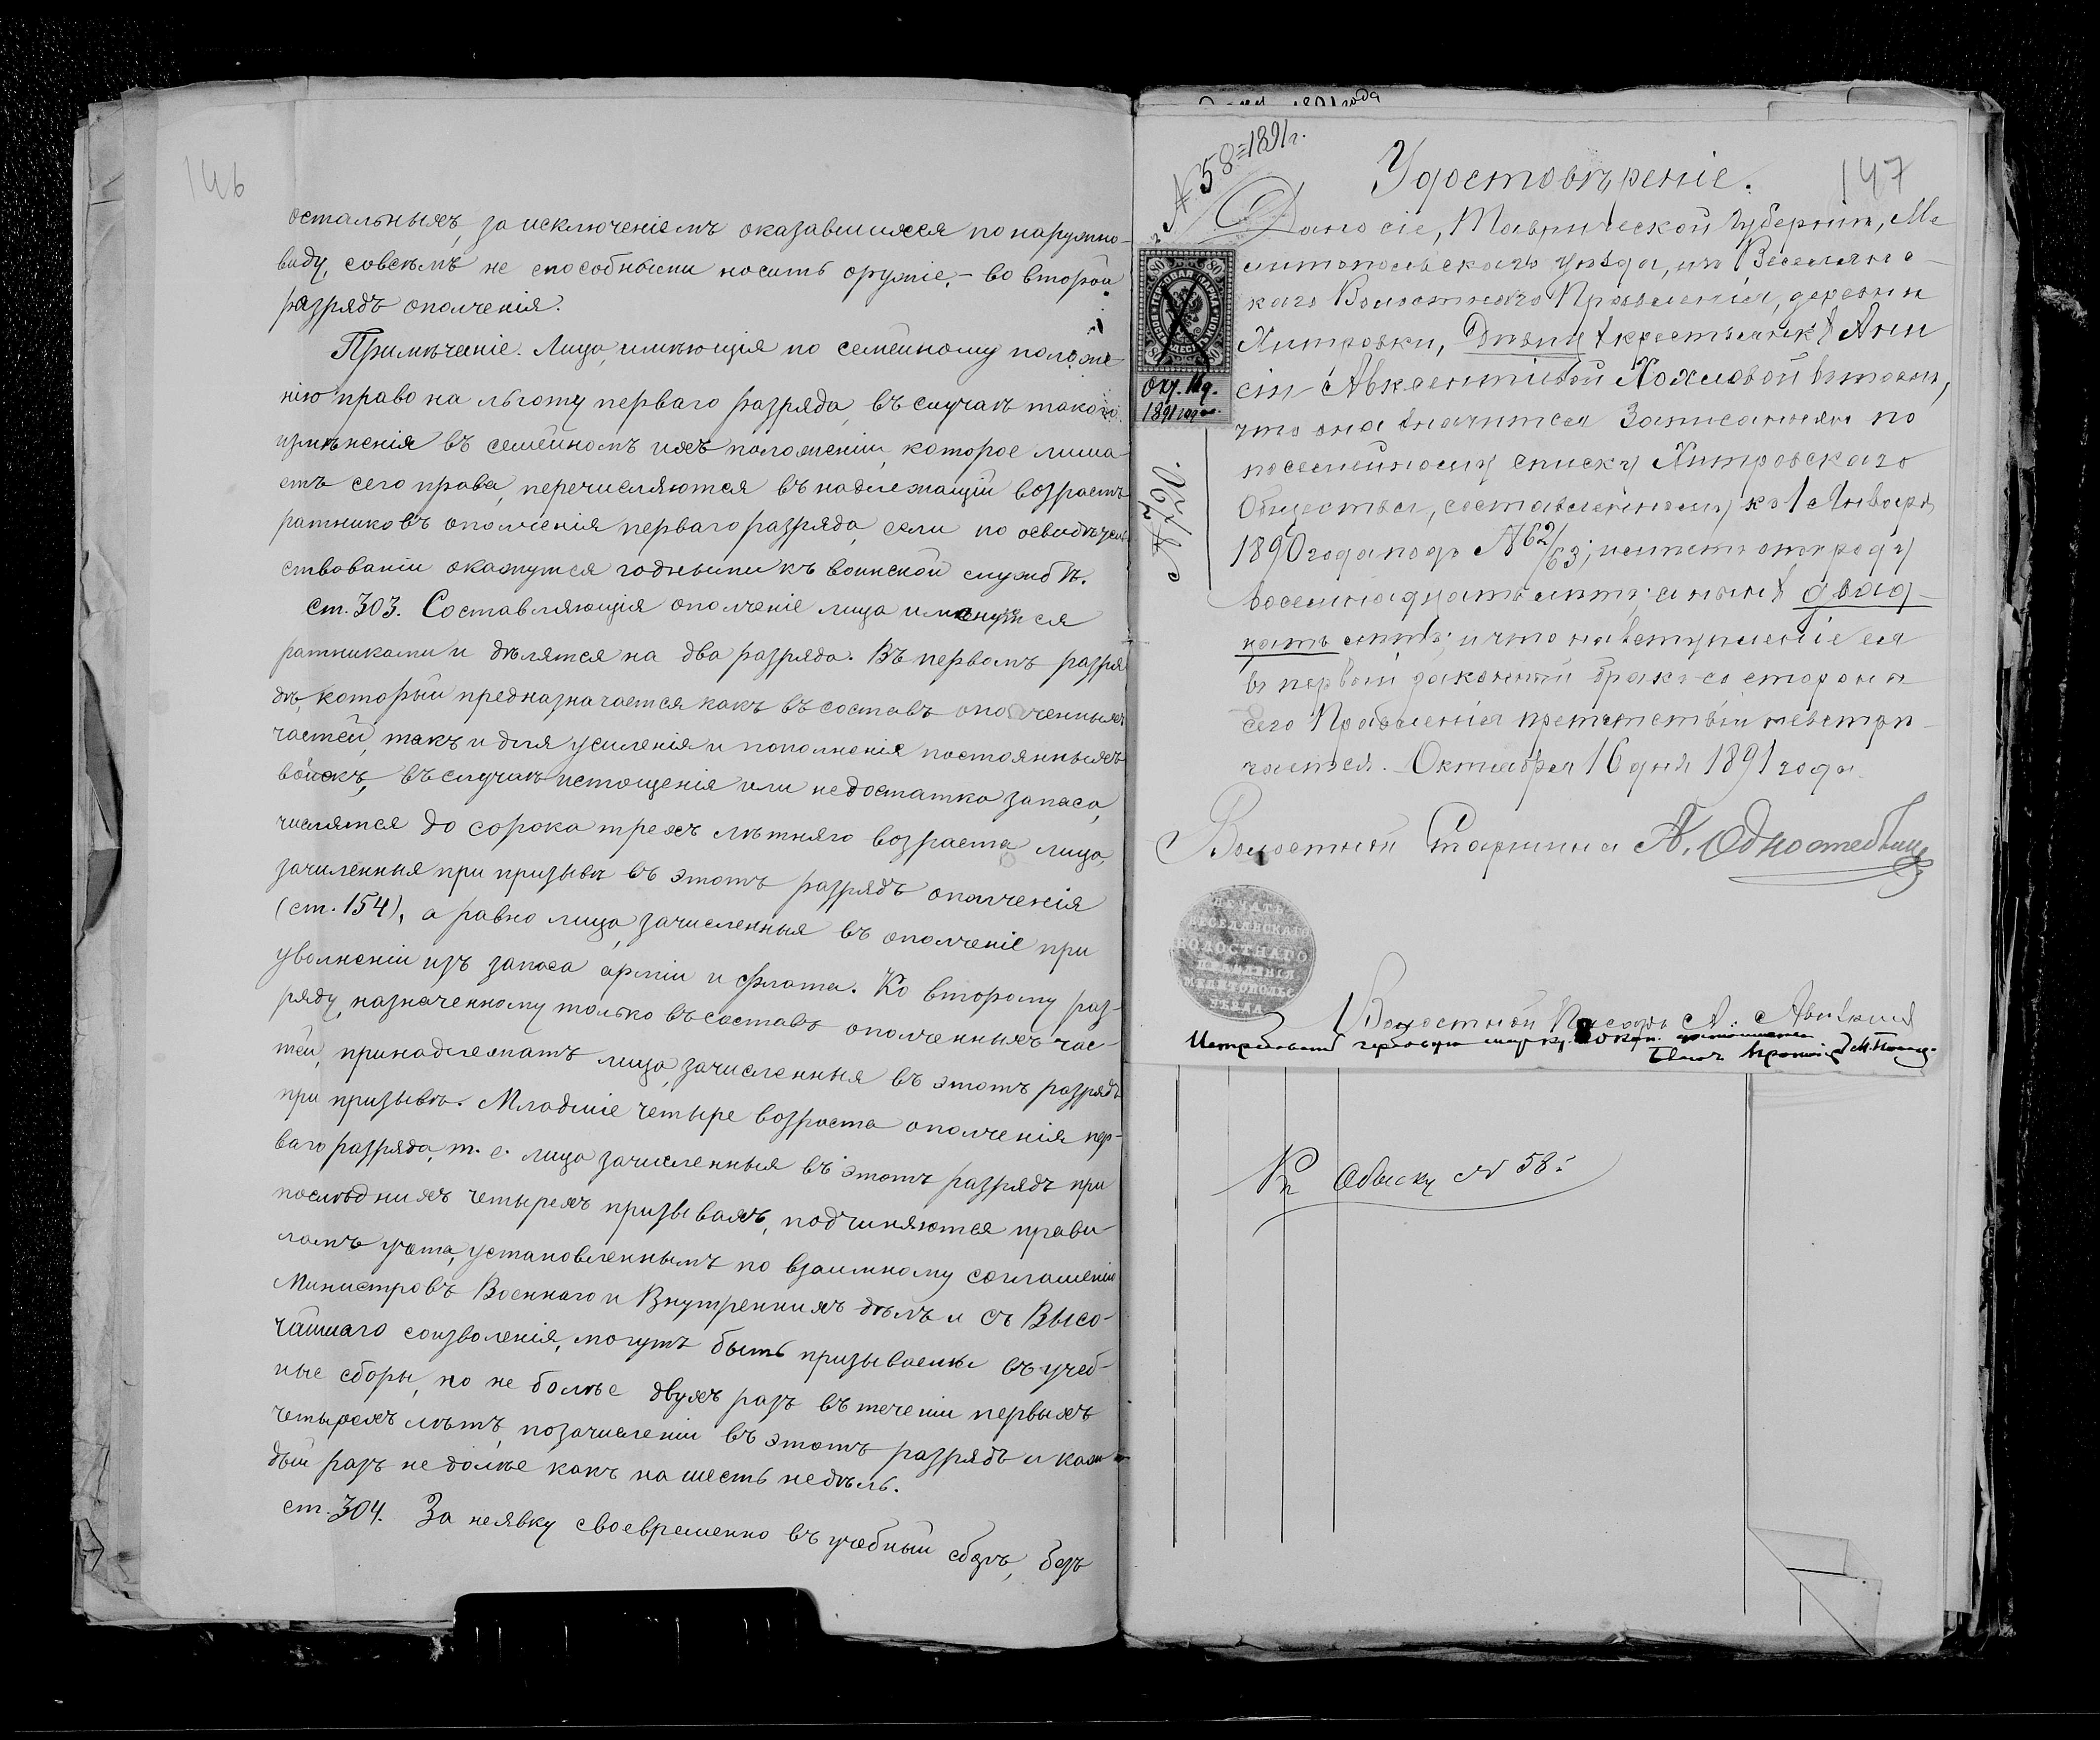 146
остальныхъ, за исключеніемъ оказавшихся по наружно-
виду, совсѣмъ не способными носить оружіе,- во второй
разрядъ ополченія.
Примѣчаніе. Лица, имѣющія по семейному положе-
нію право на льготу перваго разряда, въ случаѣ такого
измѣненія въ семейномъ ихъ положеніи, которое лиша-
етъ сего права, перечисляются въ надлежащій возрастъ
ратниковъ ополченія перваго разряда, если по освидѣтель-
ствованіи окажутся годными къ воинской службѣ.
ст. 303. Составляющія ополченіе лица именуются
ратниками и дѣлятся на два разряда. Въ первомъ разря-
дѣ, который предназначается какъ въ составъ ополченныхъ
частей, такъ и для усиленія и пополненія постоянныхъ
войскъ, въ случаѣ истощенія или недостатка запаса,
числятся до сорока трехъ лѣтняго возраста лица,
зачисленныя при призывѣ въ этотъ разрядъ ополченія
(ст. 154), а равно лица, зачисленныя въ ополченіе при
увольненіи изъ запаса арміи и флота. Ко второму раз-
ряду, назначенному только въ составъ ополченныхъ час-
тей, принадлежатъ лица, зачисленныя въ этотъ разрядъ
при призывѣ. Младшіе четыре возраста ополченія пер-
ваго разряда, т. е. лица зачисленныя въ этотъ разрядъ при
послѣднихъ четырехъ призывахъ, подчиняются прави-
ламъ учета, установленнымъ по взаимному соглашенію
Министровъ Военнаго и Внутреннихъ дѣлъ и съ Высо-
чайшаго соизволенія, могутъ быть призываемы въ учеб-
ные сборы, но не болѣе двухъ разъ въ теченіи первыхъ
четырехъ лѣтъ, по зачисленіи въ этотъ разрядъ и каж-
дый разъ не долѣе какъ на шесть недѣль.
ст. 304. За неявку своевременно въ учебный сборъ, безъ
1891 года
№ 58=1891 г.
147
Удостовѣреніе.
Дано сіе, Таврической Губерніи, Ме-
литопольскаго уѣзда, изъ Веселянс-
каго Волостнаго Правленія, деревни
Хитровки, Дѣвицѣ крестьянкѣ Ани-
сіи Авксентіевой Хохловой въ томъ,
что она значится записанною по
посемейному списку Хитровскаго
Общества, составленному къ 1 Января
1890 года подъ № 62/63; имѣетъ отъ роду
восемнадцать лѣтъ; а нынѣ двад-
цать лѣтъ; и что на вступленіе ея
въ первый законный бракъ со стороны
сего Правленія препятствій невстрѣ-
чается. Октября 16 дня 1891 года
80 ГЕРБОВАЯ МАРКА 80
окт. 16 д.
1891 года.
Волостной Старшина А.
ПЕЧАТЬ
ВЕСЕЛЯНСКАГО
ВОЛОСТНАГО
ПРАВЛЕНІЯ
МЕЛИТОПОЛЬС
УѢЗДА
Волостной Писарь А.
гербовую марку 80 коп.
Къ Обыску № 58: